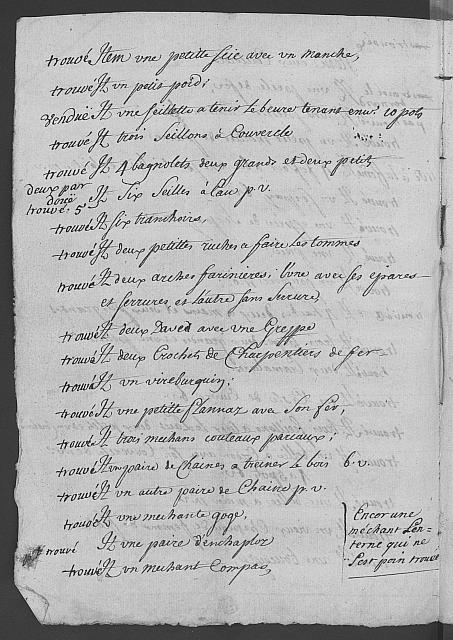 trouvé Item vne petitte Seie avec vn manche,
trouvé It vn petit poid;
vendüe It vne seillette a tenir le beurre tenant env. 10 pots
trouvé It trois Seillons à Couvercle
trouvé It 4 bagnolets deux grands et deux petits
deux par
trouvé 5 It Six Seilles à L'au p. v.
trouvé It Six tranchoirs,
trouvé It deux petittes ruches a faire les tommes
trouvé It deux arches farinieres; l'une avec ses epares
et serrures et l'autre sans serrure,
trouvé It deux avec vne Greppe
trouvé It deux Crochets de Charpentiers de fer
trouvé It vn vireburquin;
trouvé It vne petitte flannaz avec Son fer,
trouvé It trois mechans couteaux parcaux;
trouvé It vne paire de Chaines a treiner le bois 6. v.
trouvé It vn autre paire de Chaine p. v.
trouvé It vne mechante goge,
trouvé It vne paire d'enchaploz
trouvé It vn mechant Compas,
Encor une
méchant Len-
terne qui ne
s'est poin trouvé